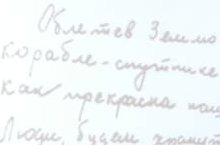 Облетев Землю
корабле-спутнике
как прекрасна наш
Люди, будем хранит